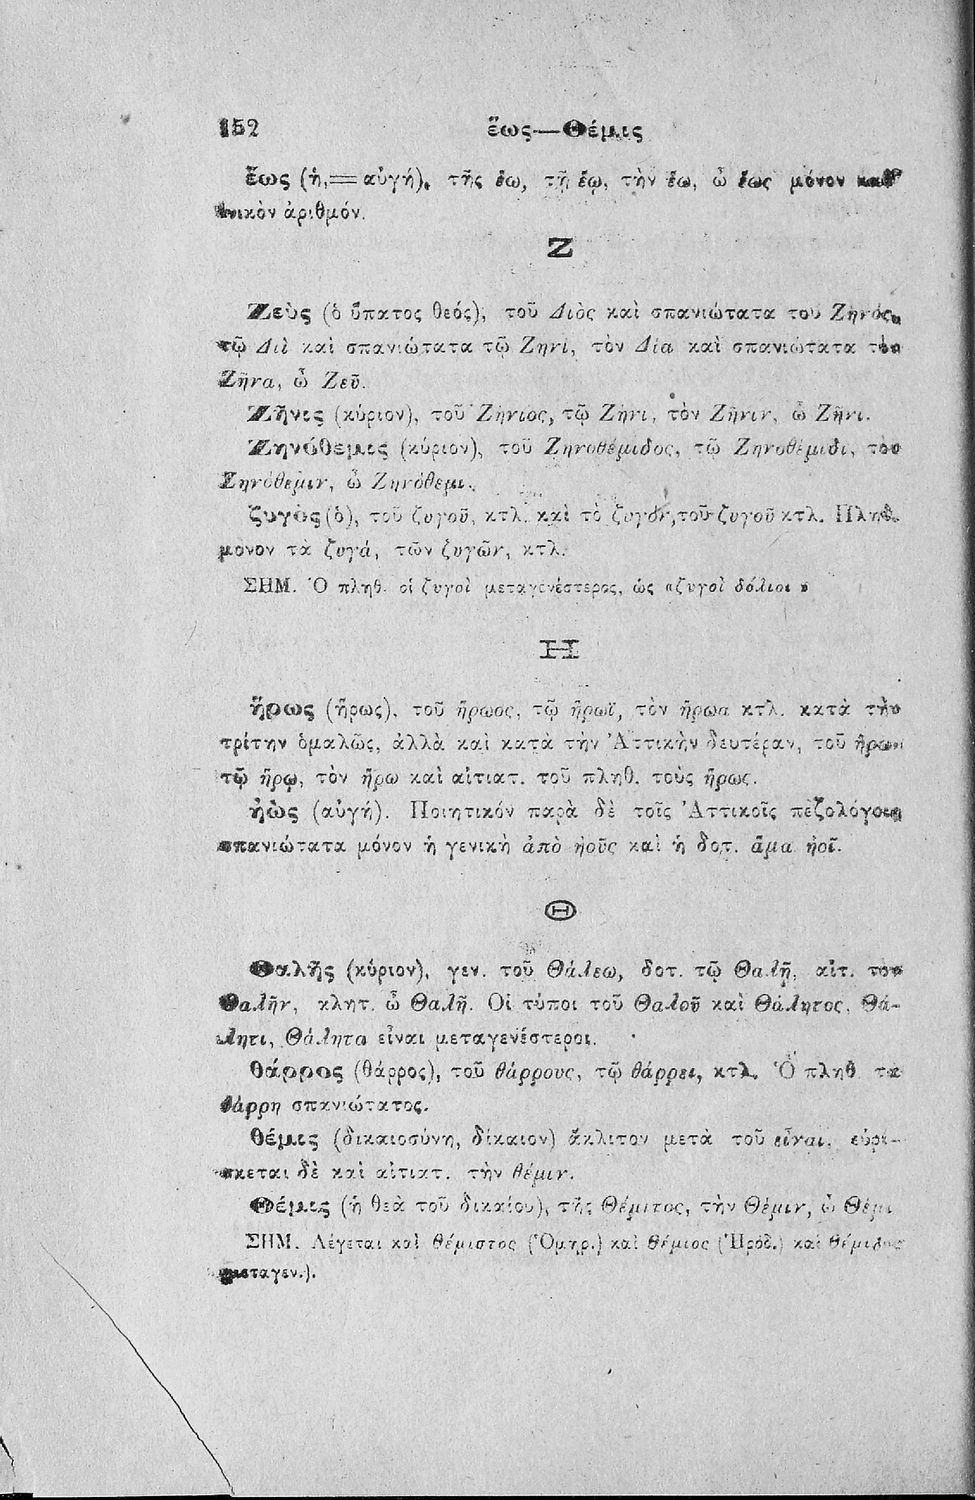 152 ἕως—Θέμις
ἕως (ἡ,=αὐγή), τῆς ἕω, τῇ ἕῳ, τὴν ἕω, ὦ ἕως μόνον καθ'
ἑνικὸν ἀριθμόν.
Ζ
Ζεὺς (ὁ ὕπατος θεός), τοῦ Διὸς καὶ σπανιώτατα τοῦ Ζηνός,
τῷ Διὶ καὶ σπανιώτατα τῷ Ζηνί, τὸν Δία καὶ σπανιώτατα τὸν
Ζῆνα, ὦ Ζεῦ.
Ζῆνις (κύριον), τοῦ Ζήνιος, τῷ Ζήνι, τὸν Ζῆνιν, ὦ Ζῆνι.
Ζηνόθεμις (κύριον), τοῦ Ζηνοθέμιδος, τῷ Ζηνοθέμιδι, τὸν
Ζηνόθεμιν, ὦ Ζηνόθεμι.
ζυγὸς (ὁ), τοῦ ζυγοῦ, κτλ. καὶ τὸ ζυγόν, τοῦ ζυγοῦ κτλ. Πληθ.
μόνον τὰ ζυγά, τῶν ζυγῶν, κτλ.
ΣΗΜ. Ὁ πληθ. οἱ ζυγοὶ μεταγενέστερος, ὡς «ζυγοὶ δόλιοι»
Η
ἥρως (ἥρως), τοῦ ἥρωος, τῷ ἥρωϊ, τὸν ἥρωα κτλ. κατὰ τὴν
τρίτην ὁμαλῶς, ἀλλὰ καὶ κατὰ τὴν Ἀττικὴν δευτέραν, τοῦ ἥρω,
τῷ ἥρῳ, τὸν ἥρω καὶ αἰτιατ. τοῦ πληθ. τοὺς ἥρως.
ἠὼς (αὐγή). Ποιητικόν παρὰ δὲ τοῖς Ἀττικοῖς πεζολόγοις
σπανιώτατα μόνον ἡ γενικὴ ἀπὸ ἠοῦς καὶ ἡ δοτ. ἅμα ἠοῖ.
Θ
Θαλῆς (κύριον), γεν. τοῦ Θάλεω, δοτ. τῷ Θαλῇ, αἰτ. τὸν
Θαλῆν, κλητ. ὦ Θαλῆ. Οἱ τύποι τοῦ Θαλοῦ καὶ Θάλητος, Θά-
λητι, Θάλητα εἶναι μεταγενέστεροι.
θάρρος (θάρρος), τοῦ θάρρους, τῷ θάρρει, κτλ. Ὁ πληθ τὰ
θάρρη σπανιώτατος.
θέμις (δικαιοσύνη, δίκαιον) ἄκλιτον μετὰ τοῦ εἶναι, εὑρί-
σκεται δὲ καὶ αἰτιατ. τὴν θέμιν.
Θέμις (ἡ θεὰ τοῦ δικαίου), τῆς Θέμιτος, τὴν Θέμιν, ὦ Θέμι
ΣΗΜ. Λέγεται καὶ θέμιστος (Ὅμηρ.) καὶ θέμιος (Ἡρόδ.) καὶ θέμιδος
(μεταγεν.).